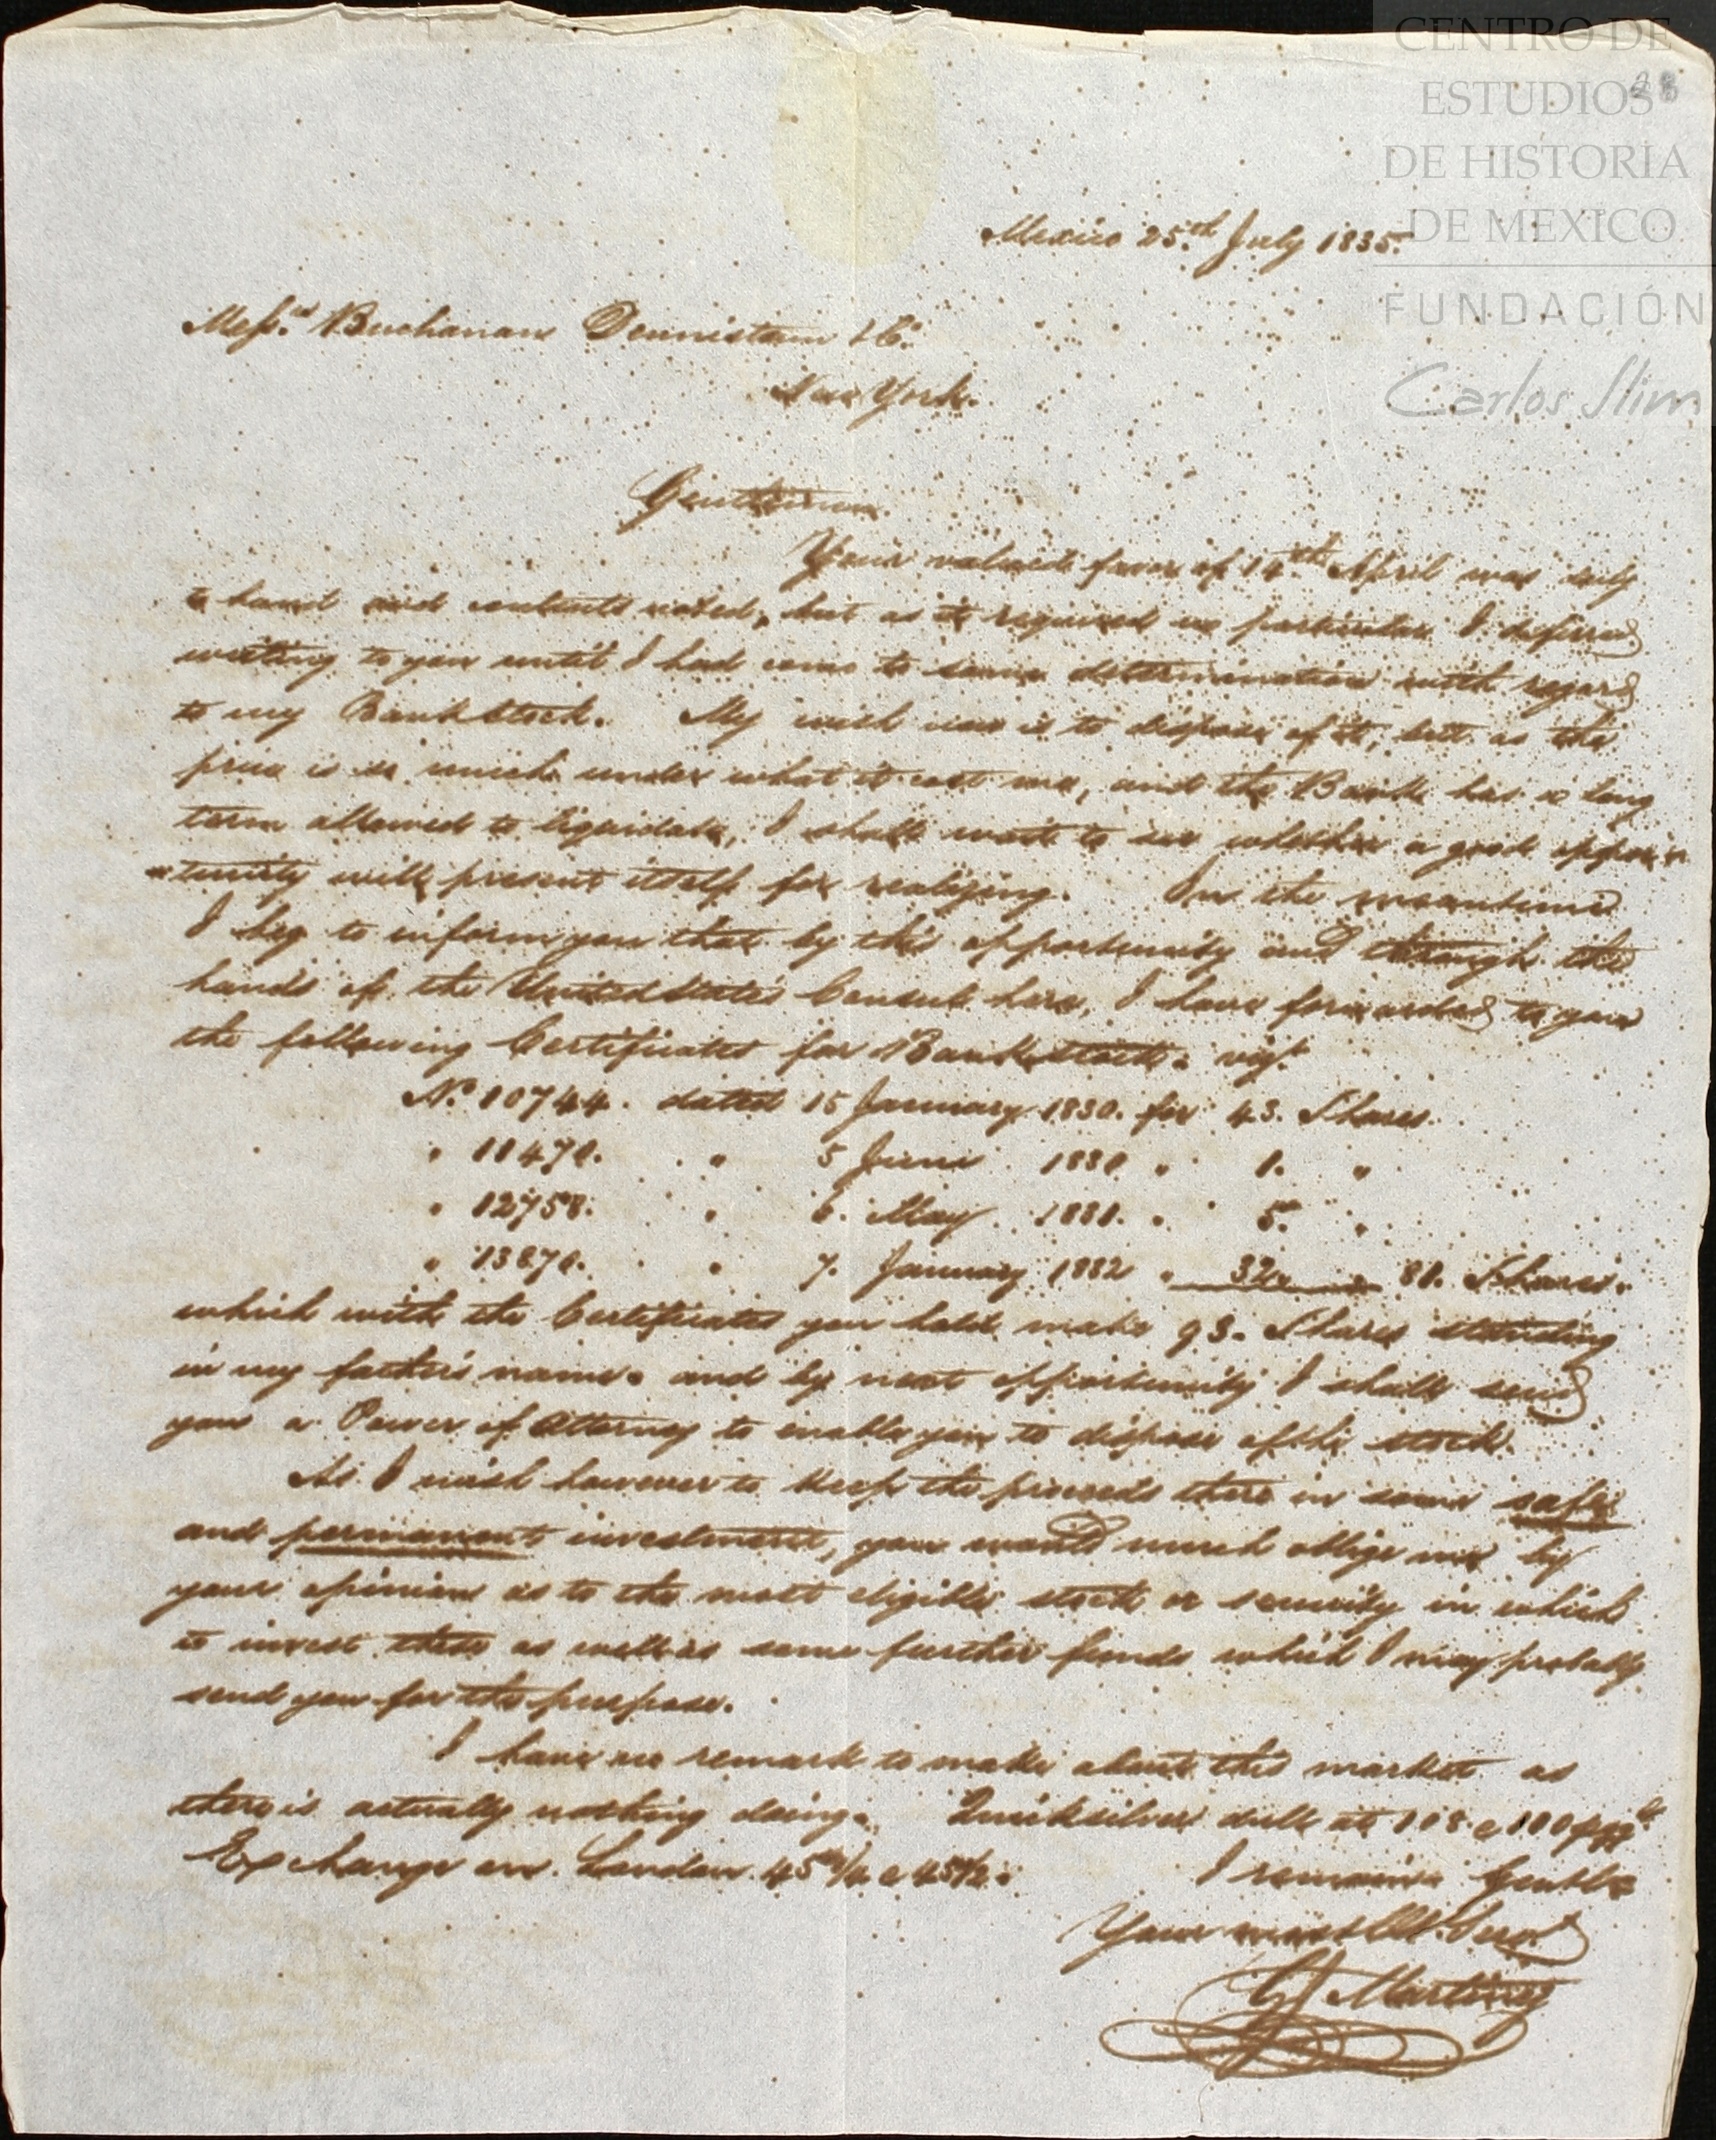 CENTRO DE
ESTUDIOS
DE HISTORIA
DE MEXICO
FUNDACIÓN
Carlos Slim
28
Mexico 25.th July 1835.
Mess.rs Buchanan Dennistoun & Co.
New York.
Gentlemen.
Your valued favor of 14.th April was duly
to hand and contents noted, but as it required no particular I deferred
writing to you until I had come to some determination with regard
to my Bank Stock. My wish now is to dispose of it, but as the
price is so much under what it cost me, and the Bank has a long
term allowed to liquidate, I shall wait to see whether a good oppor
tunity will present itself for realizing. In the meantime
I beg to inform you that by this opportunity and through the
hands of the United States Consul here, I have forwarded to you
the following Certificates for Bank stock. vizt.
No. 10744. dated 15 January 1830. for 43. Shares.
" 11470. " 5 June 1830 " 1. "
" 12758. " 6. May 1831. " 5. "
" 13870. " 7. January 1832 " 32. " 81. Shares.
which with the Certificates you hold make 93. Shares standing
in my father's name. and by next opportunity I shall send
you a Power of Attorney to enable you to dispose of the stock.
As I wish however to keep the proceeds there in some safe
and permanent investment, you would much oblige me by
your opinion as to the most eligible stock or security in which
to invest these as well as some further funds which I may probably
send you for the purpose.
I have no remark to make about this market as
there is actually nothing doing. Quicksilver dull at 108 a 110
Exchange on London 45 1/4 a 45 1/2.
I remain Gentln
Your most Ob. Serv.t
Martinez